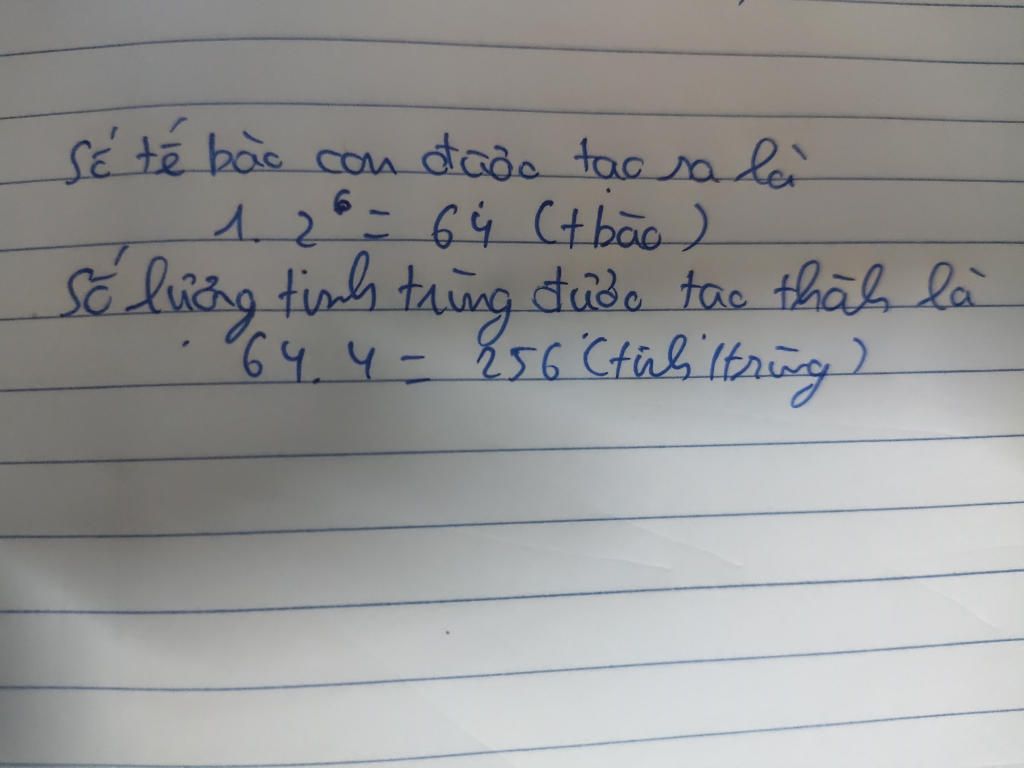 Số tế bào con được tạo ra là
1. 2⁶ = 64 (tbào)
Số lượng tinh trùng được tạo thành là
64. 4 = 256 (tinh trùng)